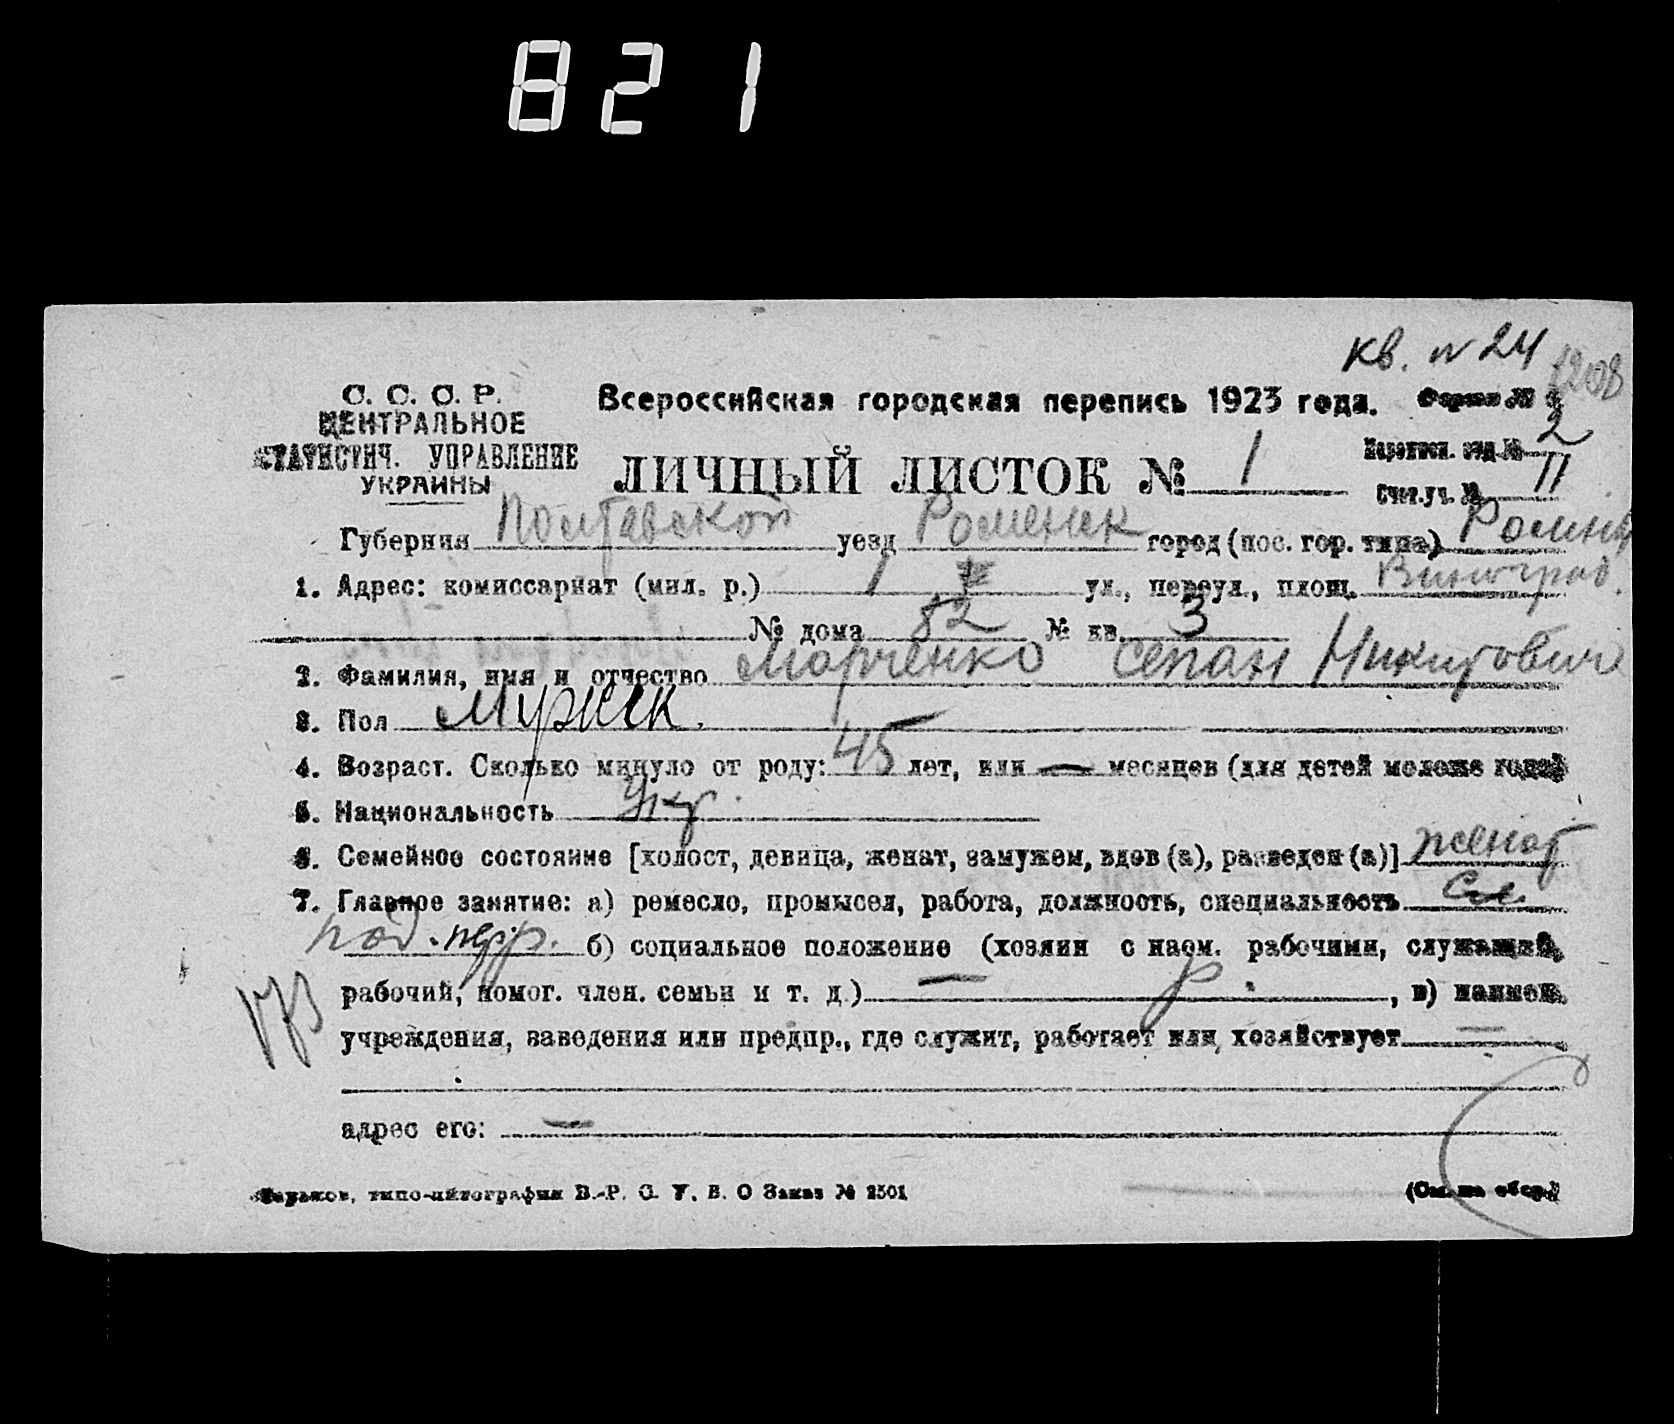 821
кв. № 24
1208
С. С. С. Р.
ЦЕНТРАЛЬНОЕ
СТАТИСТИЧ. УПРАВЛЕНИЕ
УКРАИНЫ
Всероссийская городская перепись 1923 года. Форма №
ЛИЧНЫЙ ЛИСТОК № 1
Переписн. отд. № 2
Счет. уч. № 11
Губерния Полтавской уезд Роменск город (пос. гор. типа) Ромны
1. Адрес: комиссариат (мил. р.) 1 ул., переул., площ. Виноград.
№ дома 82 № кв. 3
2. Фамилия, имя и отчество Марченко Сепан Никитович
3. Пол Мужск.
4. Возраст. Сколько минуло от роду: 45 лет, или — месяцев (для детей моложе года)
5. Национальность Укр.
6. Семейное состояние [холост, девица, женат, замужем, вдов (а), разведен (а)] женат
7. Главное занятие: а) ремесло, промысел, работа, должность, специальность
б) социальное положение (хозяин с наем. рабочими, служащий,
рабочий, помог. член. семьи и т. д.) — р. , в) наимен.
учреждения, заведения или предпр., где служит, работает или хозяйствует —
адрес его: —
Харьков, типо-литография В.-Р. С. У. В. О Заказ № 2501
(См. на обор.)